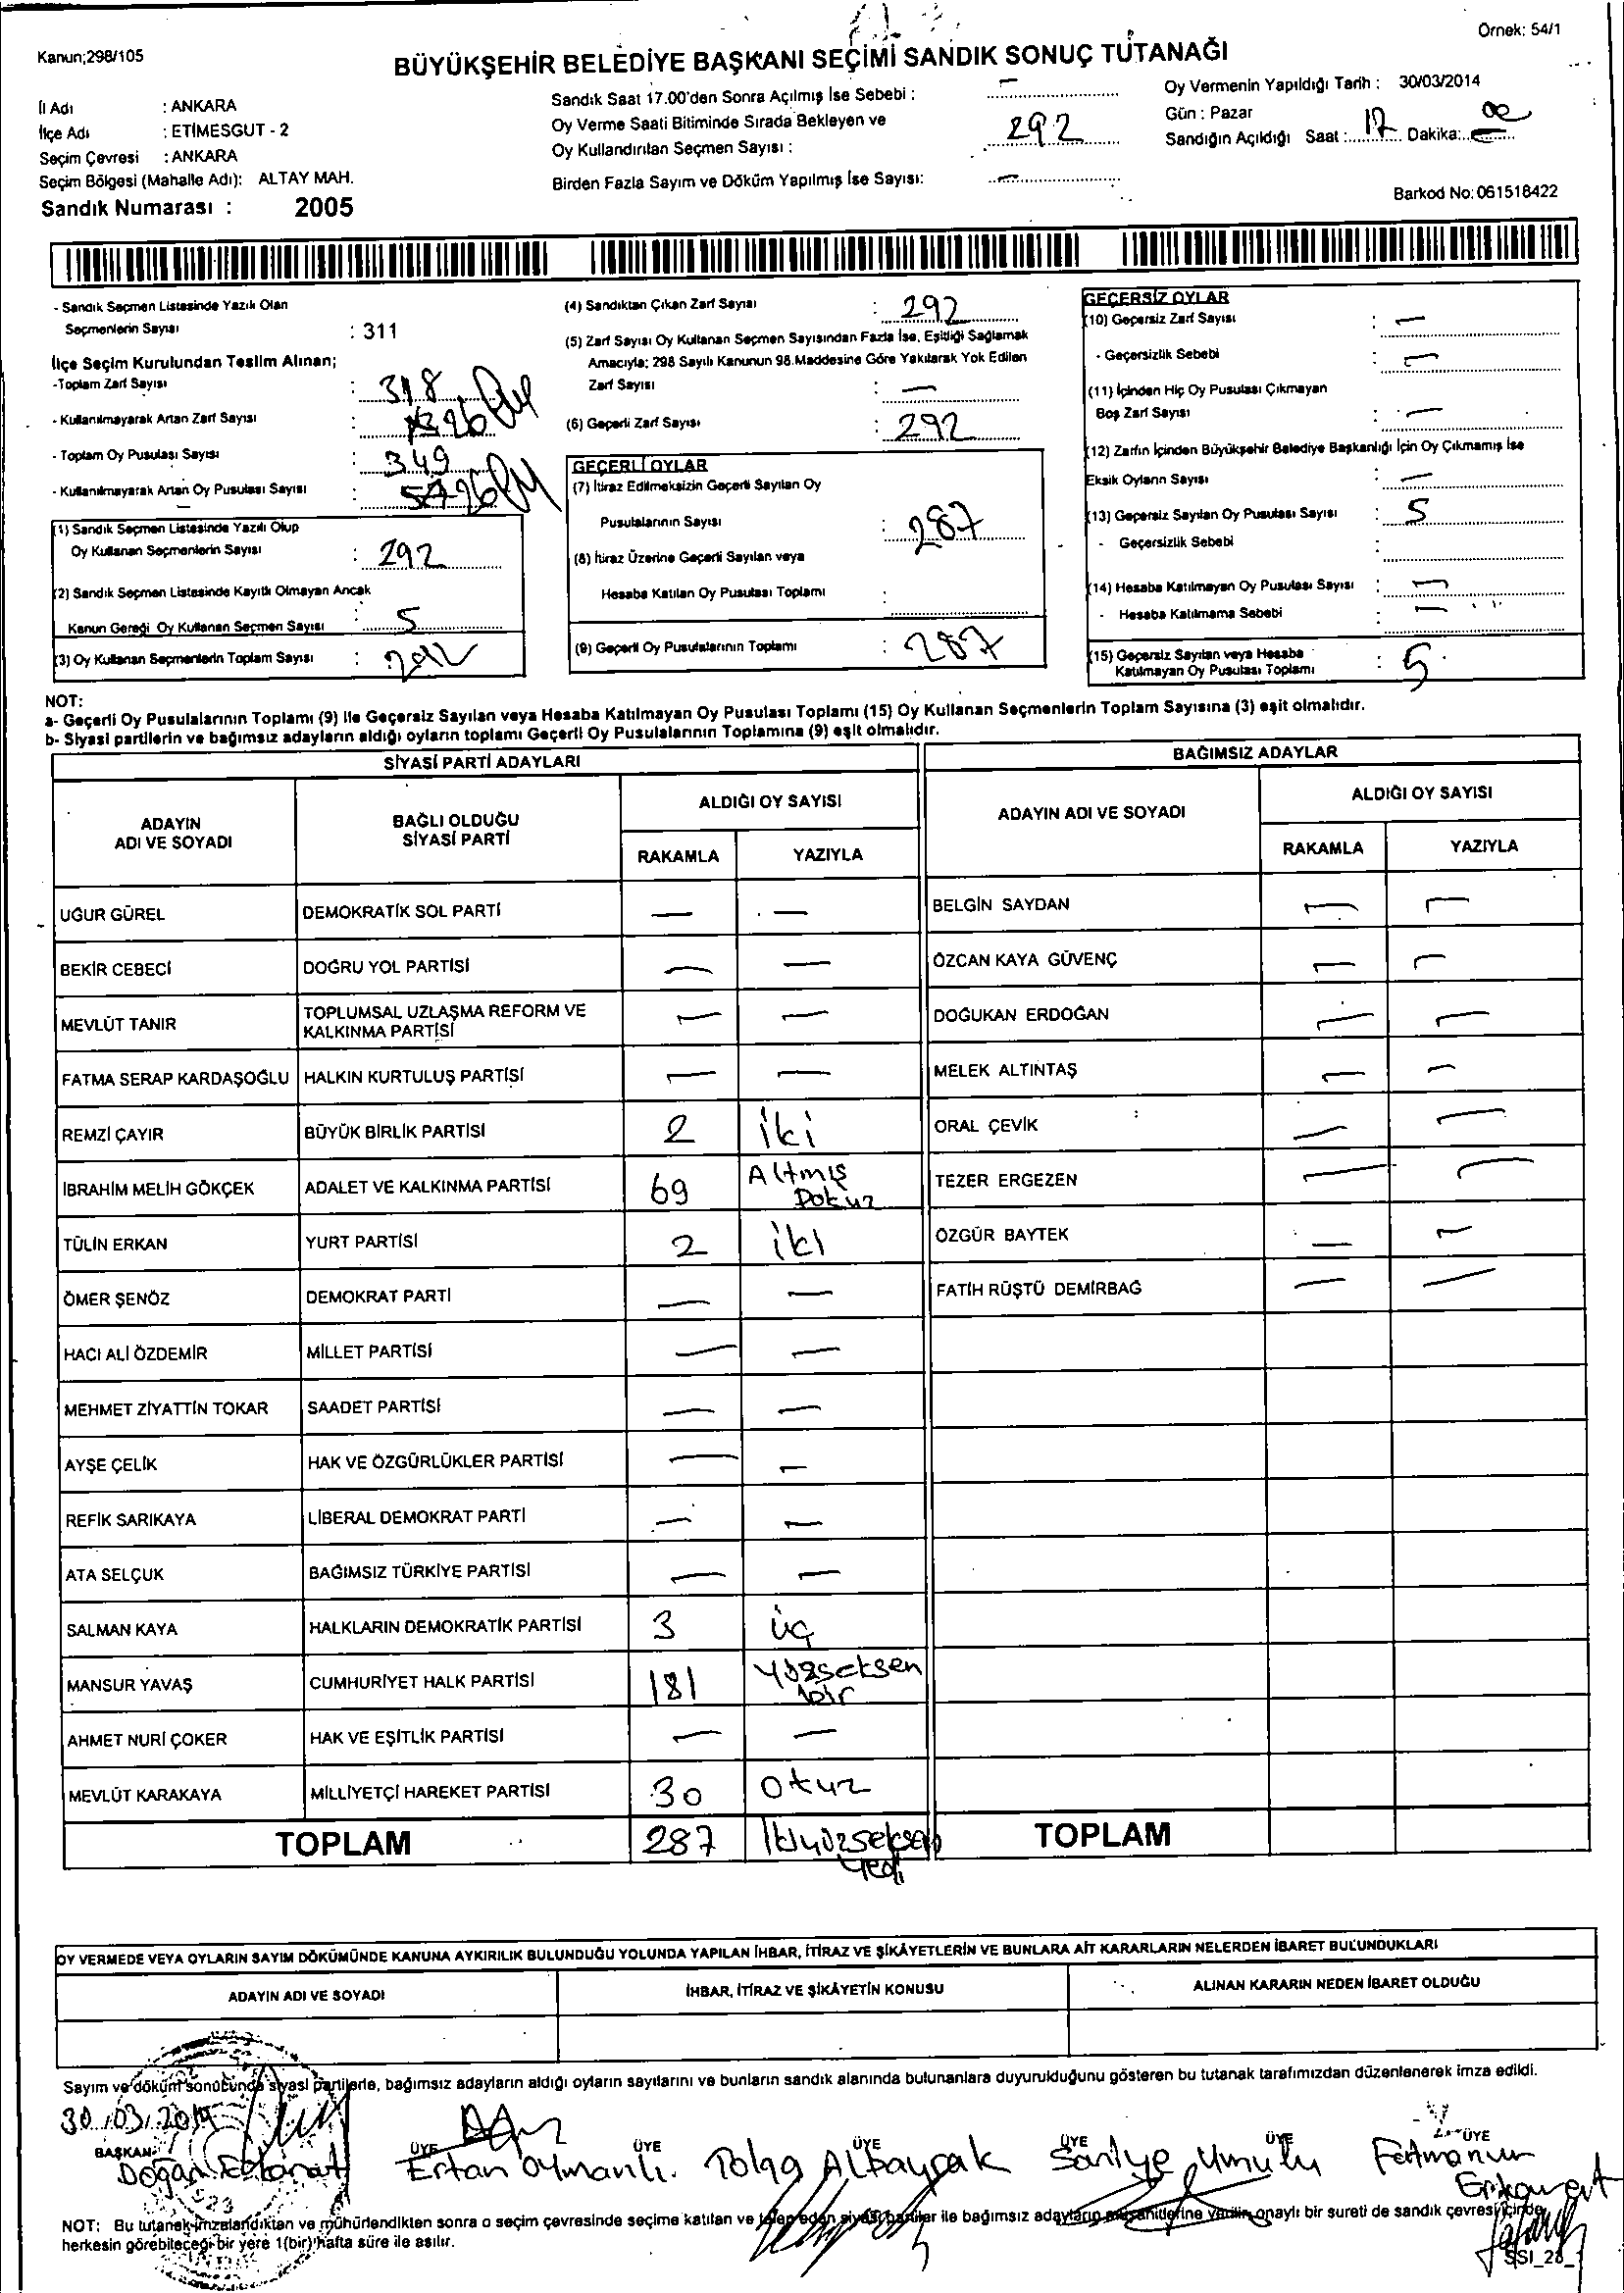 Örnek: 54/1
Kanun;298/105
BÜYÜKŞEHİR BELEDİYE BAŞKANI SEÇİMİ SANDIK SONUÇ TUTANAĞI
İl Adı : ANKARA
İlçe Adı : ETİMESGUT - 2
Seçim Çevresi : ANKARA
Seçim Bölgesi (Mahalle Adı): ALTAY MAH.
Sandık Numarası : 2005
Sandık Saat 17.00'den Sonra Açılmış İse Sebebi : —
Oy Verme Saati Bitiminde Sırada Bekleyen ve
Oy Kullandırılan Seçmen Sayısı : 292
Birden Fazla Sayım ve Döküm Yapılmış İse Sayısı: —
Oy Vermenin Yapıldığı Tarih : 30/03/2014
Gün : Pazar
Sandığın Açıldığı Saat : 17 Dakika: 00
Barkod No: 061518422
- Sandık Seçmen Listesinde Yazılı Olan
Seçmenlerin Sayısı : 311
İlçe Seçim Kurulundan Teslim Alınan;
-Toplam Zarf Sayısı : 318
- Kullanılmayarak Artan Zarf Sayısı : 26
- Toplam Oy Pusulası Sayısı : 349
- Kullanılmayarak Artan Oy Pusulası Sayısı :
(1) Sandık Seçmen Listesinde Yazılı Olup
Oy Kullanan Seçmenlerin Sayısı : 292
(2) Sandık Seçmen Listesinde Kayıtlı Olmayan Ancak
Kanun Gereği Oy Kullanan Seçmen Sayısı : 5
(3) Oy Kullanan Seçmenlerin Toplam Sayısı :
(4) Sandıktan Çıkan Zarf Sayısı : 292
(5) Zarf Sayısı Oy Kullanan Seçmen Sayısından Fazla İse, Eşitliği Sağlamak
Amacıyla; 298 Sayılı Kanunun 98.Maddesine Göre Yakılarak Yok Edilen
Zarf Sayısı : —
(6) Geçerli Zarf Sayısı : 292
GEÇERLİ OYLAR
(7) İtiraz Edilmeksizin Geçerli Sayılan Oy
Pusulalarının Sayısı : 287
(8) İtiraz Üzerine Geçerli Sayılan veya
Hesaba Katılan Oy Pusulası Toplamı :
(9) Geçerli Oy Pusulalarının Toplamı : 287
GEÇERSİZ OYLAR
(10) Geçersiz Zarf Sayısı : —
- Geçersizlik Sebebi : —
(11) İçinden Hiç Oy Pusulası Çıkmayan
Boş Zarf Sayısı : —
(12) Zarfın İçinden Büyükşehir Belediye Başkanlığı İçin Oy Çıkmamış İse
Eksik Oyların Sayısı : —
(13) Geçersiz Sayılan Oy Pusulası Sayısı : 5
- Geçersizlik Sebebi :
(14) Hesaba Katılmayan Oy Pusulası Sayısı : —
- Hesaba Katılmama Sebebi : —
(15) Geçersiz Sayılan veya Hesaba
Katılmayan Oy Pusulası Toplamı : 5
NOT:
a- Geçerli Oy Pusulalarının Toplamı (9) ile Geçersiz Sayılan veya Hesaba Katılmayan Oy Pusulası Toplamı (15) Oy Kullanan Seçmenlerin Toplam Sayısına (3) eşit olmalıdır.
b- Siyasi partilerin ve bağımsız adayların aldığı oyların toplamı Geçerli Oy Pusulalarının Toplamına (9) eşit olmalıdır.
SİYASİ PARTİ ADAYLARI
ADAYIN ADI VE SOYADI BAĞLI OLDUĞU SİYASİ PARTİ ALDIĞI OY SAYISI RAKAMLA YAZIYLA
UĞUR GÜREL DEMOKRATİK SOL PARTİ — —
BEKİR CEBECİ DOĞRU YOL PARTİSİ — —
MEVLÜT TANIR TOPLUMSAL UZLAŞMA REFORM VE KALKINMA PARTİSİ — —
FATMA SERAP KARDAŞOĞLU HALKIN KURTULUŞ PARTİSİ — —
REMZİ ÇAYIR BÜYÜK BİRLİK PARTİSİ 2 iki
İBRAHİM MELİH GÖKÇEK ADALET VE KALKINMA PARTİSİ 69 Altmış Dokuz
TÜLİN ERKAN YURT PARTİSİ 2 iki
ÖMER ŞENÖZ DEMOKRAT PARTİ — —
HACI ALİ ÖZDEMİR MİLLET PARTİSİ — —
MEHMET ZİYATTİN TOKAR SAADET PARTİSİ — —
AYŞE ÇELİK HAK VE ÖZGÜRLÜKLER PARTİSİ — —
REFİK SARIKAYA LİBERAL DEMOKRAT PARTİ — —
ATA SELÇUK BAĞIMSIZ TÜRKİYE PARTİSİ — —
SALMAN KAYA HALKLARIN DEMOKRATİK PARTİSİ 3 üç
MANSUR YAVAŞ CUMHURİYET HALK PARTİSİ 181 Yüzseksen bir
AHMET NURİ ÇOKER HAK VE EŞİTLİK PARTİSİ — —
MEVLÜT KARAKAYA MİLLİYETÇİ HAREKET PARTİSİ 30 Otuz
TOPLAM 287 İkiyüzseksen yedi
BAĞIMSIZ ADAYLAR
ADAYIN ADI VE SOYADI ALDIĞI OY SAYISI RAKAMLA YAZIYLA
BELGİN SAYDAN — —
ÖZCAN KAYA GÜVENÇ — —
DOĞUKAN ERDOĞAN — —
MELEK ALTINTAŞ — —
ORAL ÇEVİK — —
TEZER ERGEZEN — —
ÖZGÜR BAYTEK — —
FATİH RÜŞTÜ DEMİRBAĞ — —
TOPLAM
OY VERMEDE VEYA OYLARIN SAYIM DÖKÜMÜNDE KANUNA AYKIRILIK BULUNDUĞU YOLUNDA YAPILAN İHBAR, İTİRAZ VE ŞİKÂYETLERİN VE BUNLARA AİT KARARLARIN NELERDEN İBARET BULUNDUKLARI
ADAYIN ADI VE SOYADI İHBAR, İTİRAZ VE ŞİKÂYETİN KONUSU ALINAN KARARIN NEDEN İBARET OLDUĞU
Sayım ve döküm sonucunda siyasi partilerle, bağımsız adayların aldığı oyların sayılarını ve bunların sandık alanında bulunanlara duyurulduğunu gösteren bu tutanak tarafımızdan düzenlenerek imza edildi.
30/03/2014
BAŞKAN ÜYE ÜYE ÜYE ÜYE ÜYE ÜYE
Doğan Ertan Oymanlı Tolga Albayrak Saniye Fatmanur
NOT: Bu tutanak imzalandıktan ve mühürlendikten sonra o seçim çevresinde seçime katılan ve talep eden siyasi partiler ile bağımsız adayların müşahitlerine verilir, onaylı bir sureti de sandık çevresi içinde
herkesin görebileceği bir yere 1(bir) hafta süre ile asılır.